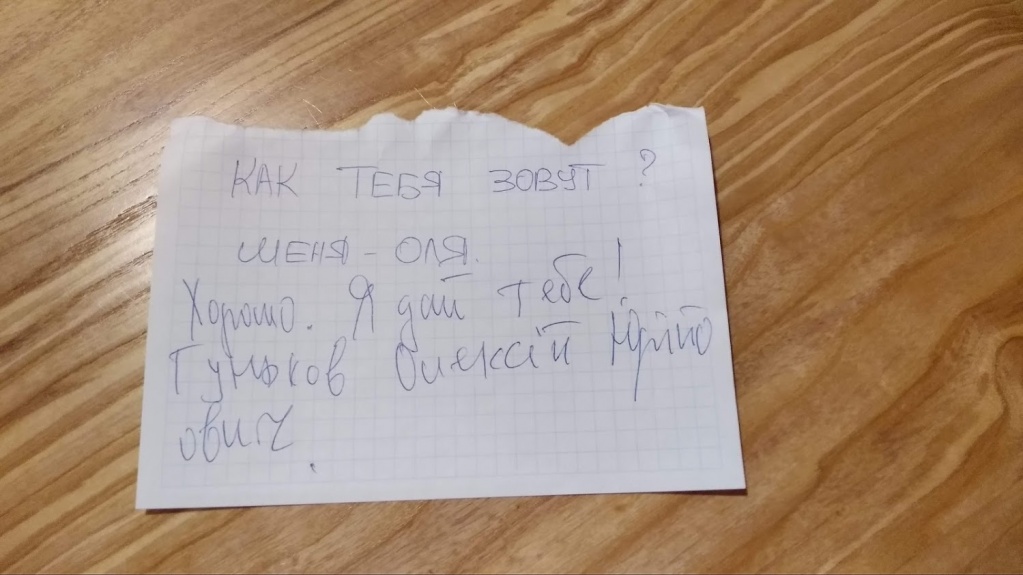 КАК ТЕБЯ ЗОВУТ ?
МЕНЯ - ОЛЯ.
Хорошо. Я дай тебе!
Гуньков Олексій
ович.